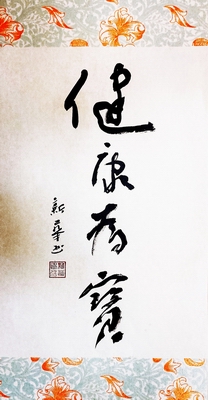 健康為寶
新華書